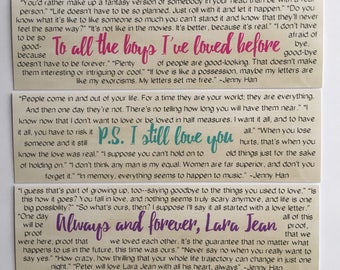 "You'd rather make up a fantasy version of somebody in your head than be with a real
person." "Life doesn't have to be so planned. Just roll with it and let it happen." "Do you
know what it's like to like someone so much you can't stand it and know that they'll never
feel the same way?" "It's not like in the movies. It's better, because it's real." "I don't have
to be so afraid of
good- To all the boys I've loved before bye,
because good-bye
doesn't have to be forever." "Plenty of people are good-looking. That doesn't make
them interesting or intriguing or cool." "If love is a possession, maybe my letters are
like my exorcisms. My letters set me free." -Jenny Han
"People come in and out of your life. For a time they are your world; they are everything.
And then one day they're not. There's no telling how long you will have them near." "I
know now that I don't want to love or be loved in half measures. I want it all, and to have
it all, you have to risk it all." "When you lose
someone and it still P.S. I still love you hurts, that's when you
know the love was real." "I suppose you can't hold on to old things just for the sake
of holding on." "I don't think any man is my equal. Women are far superior, and don't
forget it." "In memory, everything seems to happen to music." -Jenny Han
"I guess that's part of growing up, too--saying goodbye to the things you used to love." "Is
this how it goes? You fall in love, and nothing seems truly scary anymore, and life is one
big possibility?" "So what's ours, then? I suppose I'll say it all started with a love letter."
"One day all of this
will be Always and forever, Lara Jean proof, that
proof we
were here, proof that we loved each other. It's the guarantee that no matter what
happens to us in the future, this time was ours." "Never say no when you really want to
say yes." "How crazy, how thrilling that your whole life trajectory can change in just one
night." "Peter will love Lara Jean with all his heart, always" -Jenny Han